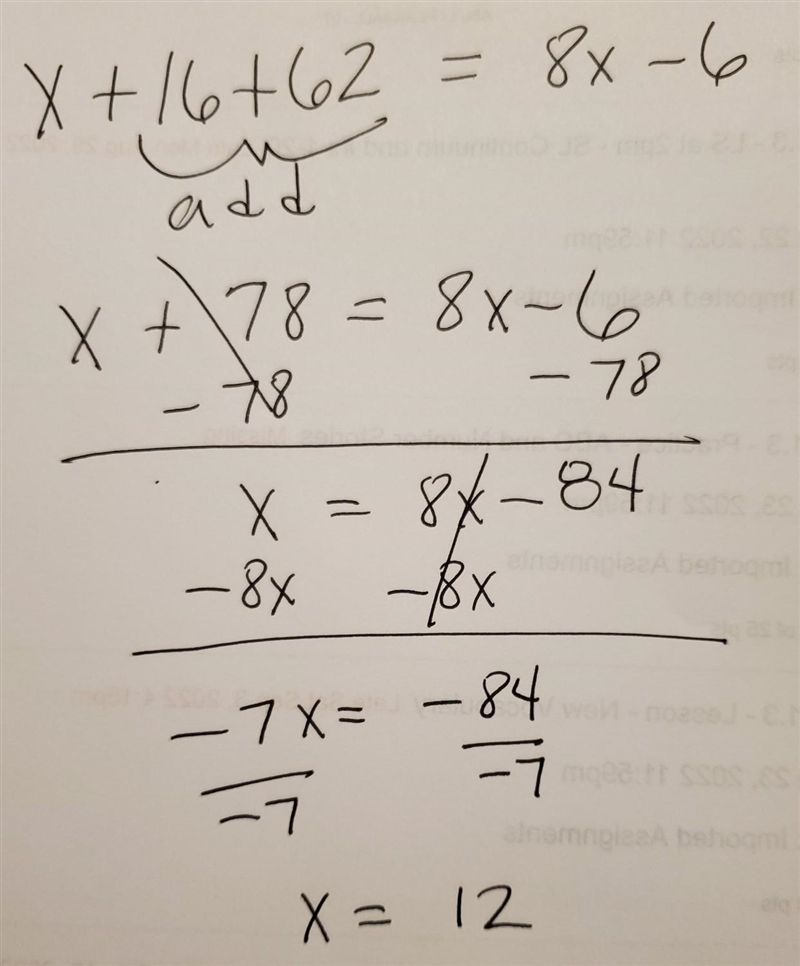 x + 16 + 62 = 8x - 6
add
x + 78 = 8x - 6
- 78 - 78
x = 8x - 84
- 8x - 8x
- 7x = - 84
- 7 - 7
x = 12